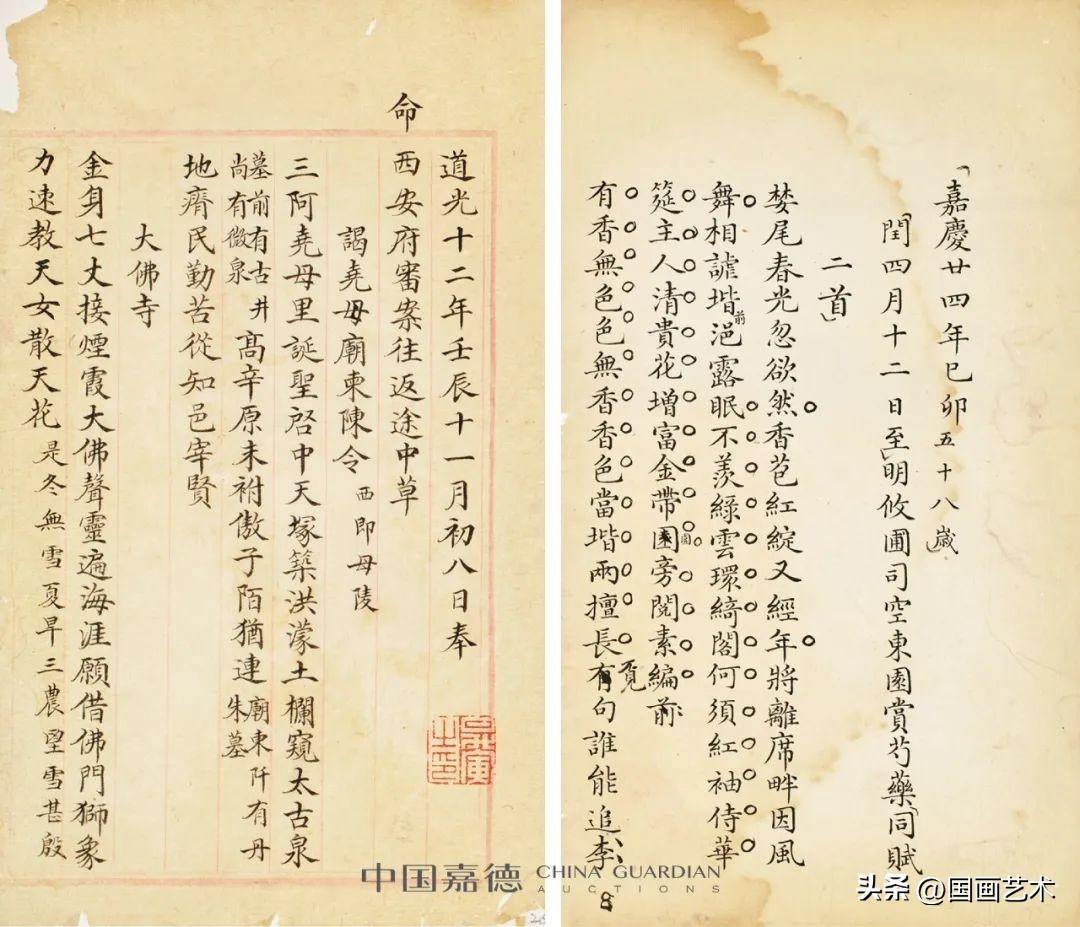 嘉慶廿四年已卯五十八歲
閏四月十二日至明攸圃司空東園賞芍藥同賦
二首
婪尾春光忽欲然香苞紅綻又經年將離席畔因風
舞相謔堦前浥露眠不羨綠雲環綺閣何須紅袖侍華
筵主人清貴花增富金帶園圍旁閱素編前
有香無色色無香香色當堦兩擅長有覓句誰能追李
8
命
道光十二年壬辰十一月初八日奉
西安府審案往返途中草
謁堯母廟柬陳令西即母陵
三阿堯母里誕聖啓中天塚築洪濛土欄窺太古泉
墓前有古井
尚有微泉
高辛原未祔傲子陌猶連
廟東阡有丹
朱墓
地瘠民勤苦從知邑宰賢
大佛寺
金身七丈接煙霞大佛聲靈遍海涯願借佛門獅象
力速教天女散天花是冬無雪夏旱三農望雪甚殷
中国嘉德 CHINA GUARDIAN
AUCTIONS
头条 @国画艺术